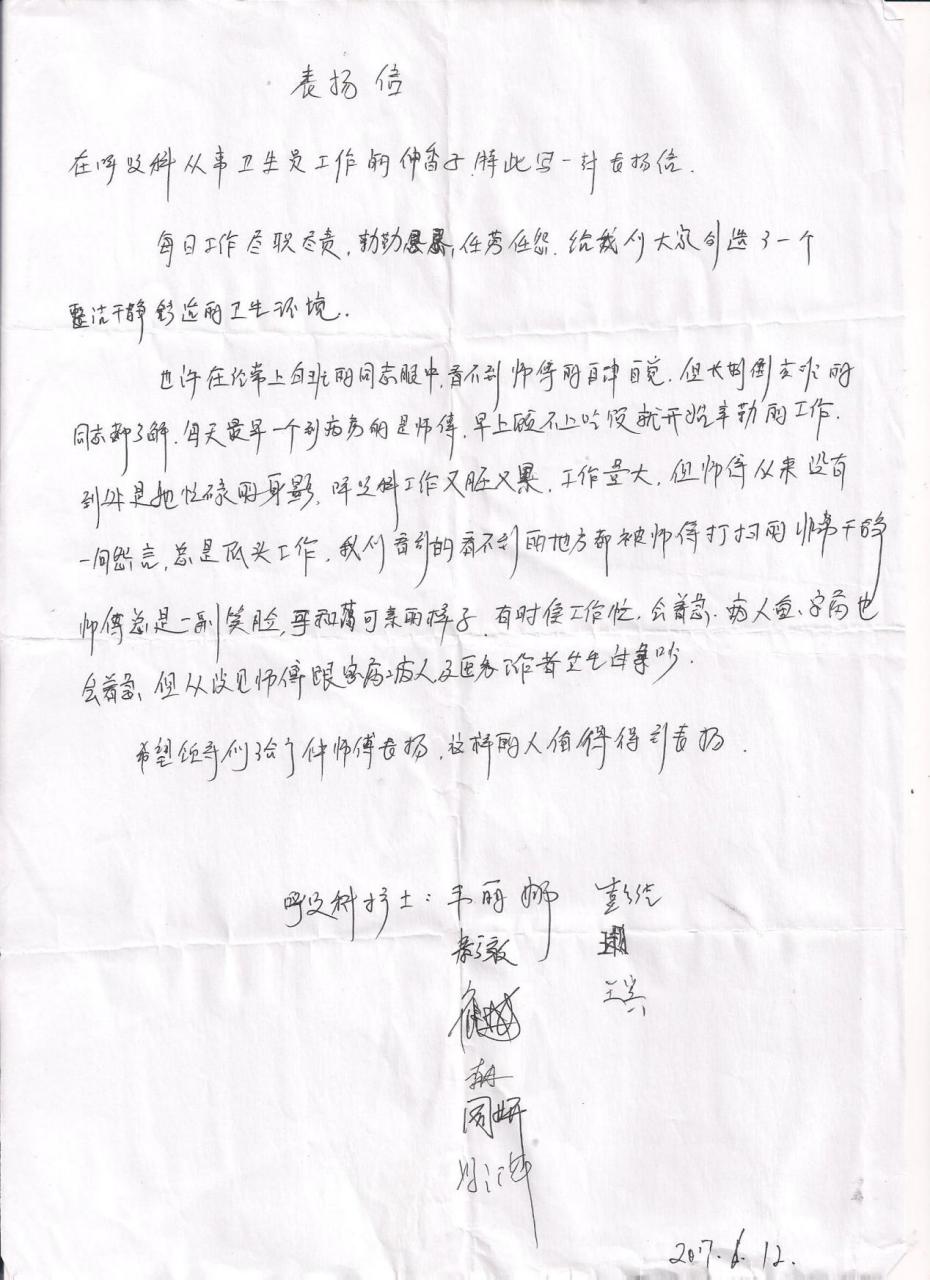 表扬信
在呼吸科从事卫生员工作的仲香子,特此写一封表扬信.
每日工作尽职尽责,勤勤恳恳,任劳任怨.给我们大家创造了一个
整洁干净舒适的卫生环境.
也许在经常上白班的同志眼中,看不到师傅的自律自觉.但长期倒夜班的
同志都了解.每天最早一个到病房的是师傅,早上顾不上吃饭就开始辛勤的工作.
到处是她忙碌的身影,呼吸科工作又脏又累,工作量大,但师傅从来没有
一句怨言,总是低头工作,我们看到的看不到的地方都被师傅打扫的非常干净
师傅总是一副笑脸,平和蔼可亲的样子.有时候工作忙,会着急.病人急、家属也
会着急,但从没见师傅跟家属、病人及医务工作者发生过争吵.
希望领导们给予仲师傅表扬,这样的人值得得到表扬.
呼吸科护士:韦丽娜
周妍
2017.6.12.